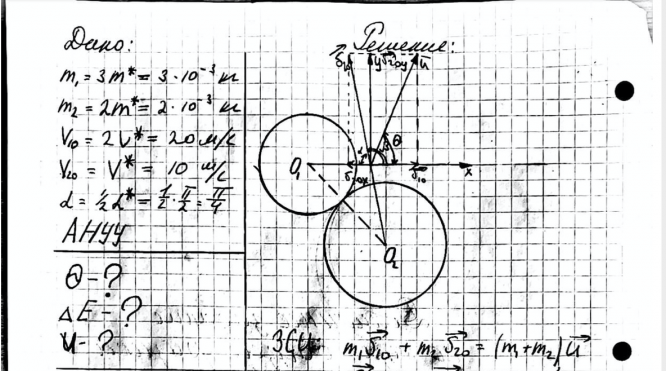 Дано:
m₁ = 3m* = 3 · 10⁻³ кг
m₂ = 2m* = 2 · 10⁻³ кг
V₁₀ = 2V* = 20 м/с
V₂₀ = V* = 10 м/с
α = ½α* = ½ · π/2 = π/4
АНУУ
Θ - ?
ΔE - ?
U - ?
Решение:
y
u⃗
Θ
x
O₁
O₂
ЗСИ: m₁υ⃗₁₀ + m₂υ⃗₂₀ = (m₁ + m₂)u⃗